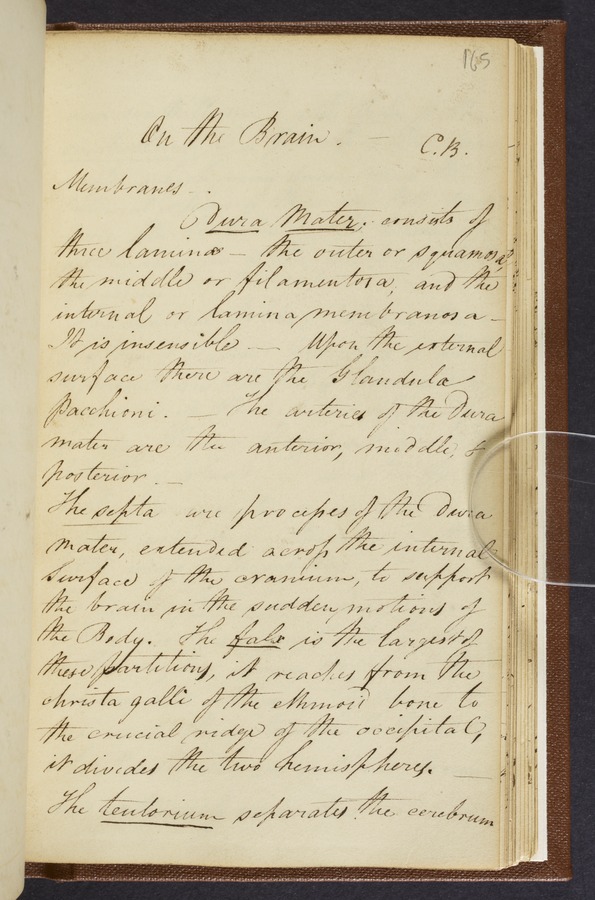 165
On the Brain. — C.B.
Membranes.
Dura Mater; consists of
three laminæ — the outer or squamosa,
the middle or filamentosa, and the
internal or lamina membranosa —
It is insensible — Upon the external
surface there are the Glandula
Pacchioni. — The arteries of the Dura
mater are the anterior, middle, &
posterior. —
The septa are processes of the Dura
Mater, extended across the internal
Surface of the cranium, to support
the brain in the sudden motions of
the Body. The falx is the largest of
these partitions, it reaches from the
christa galli of the ethmoid bone to
the crucial ridge of the occipital,
it divides the two hemispheres. —
The tentorium separates the cerebrum